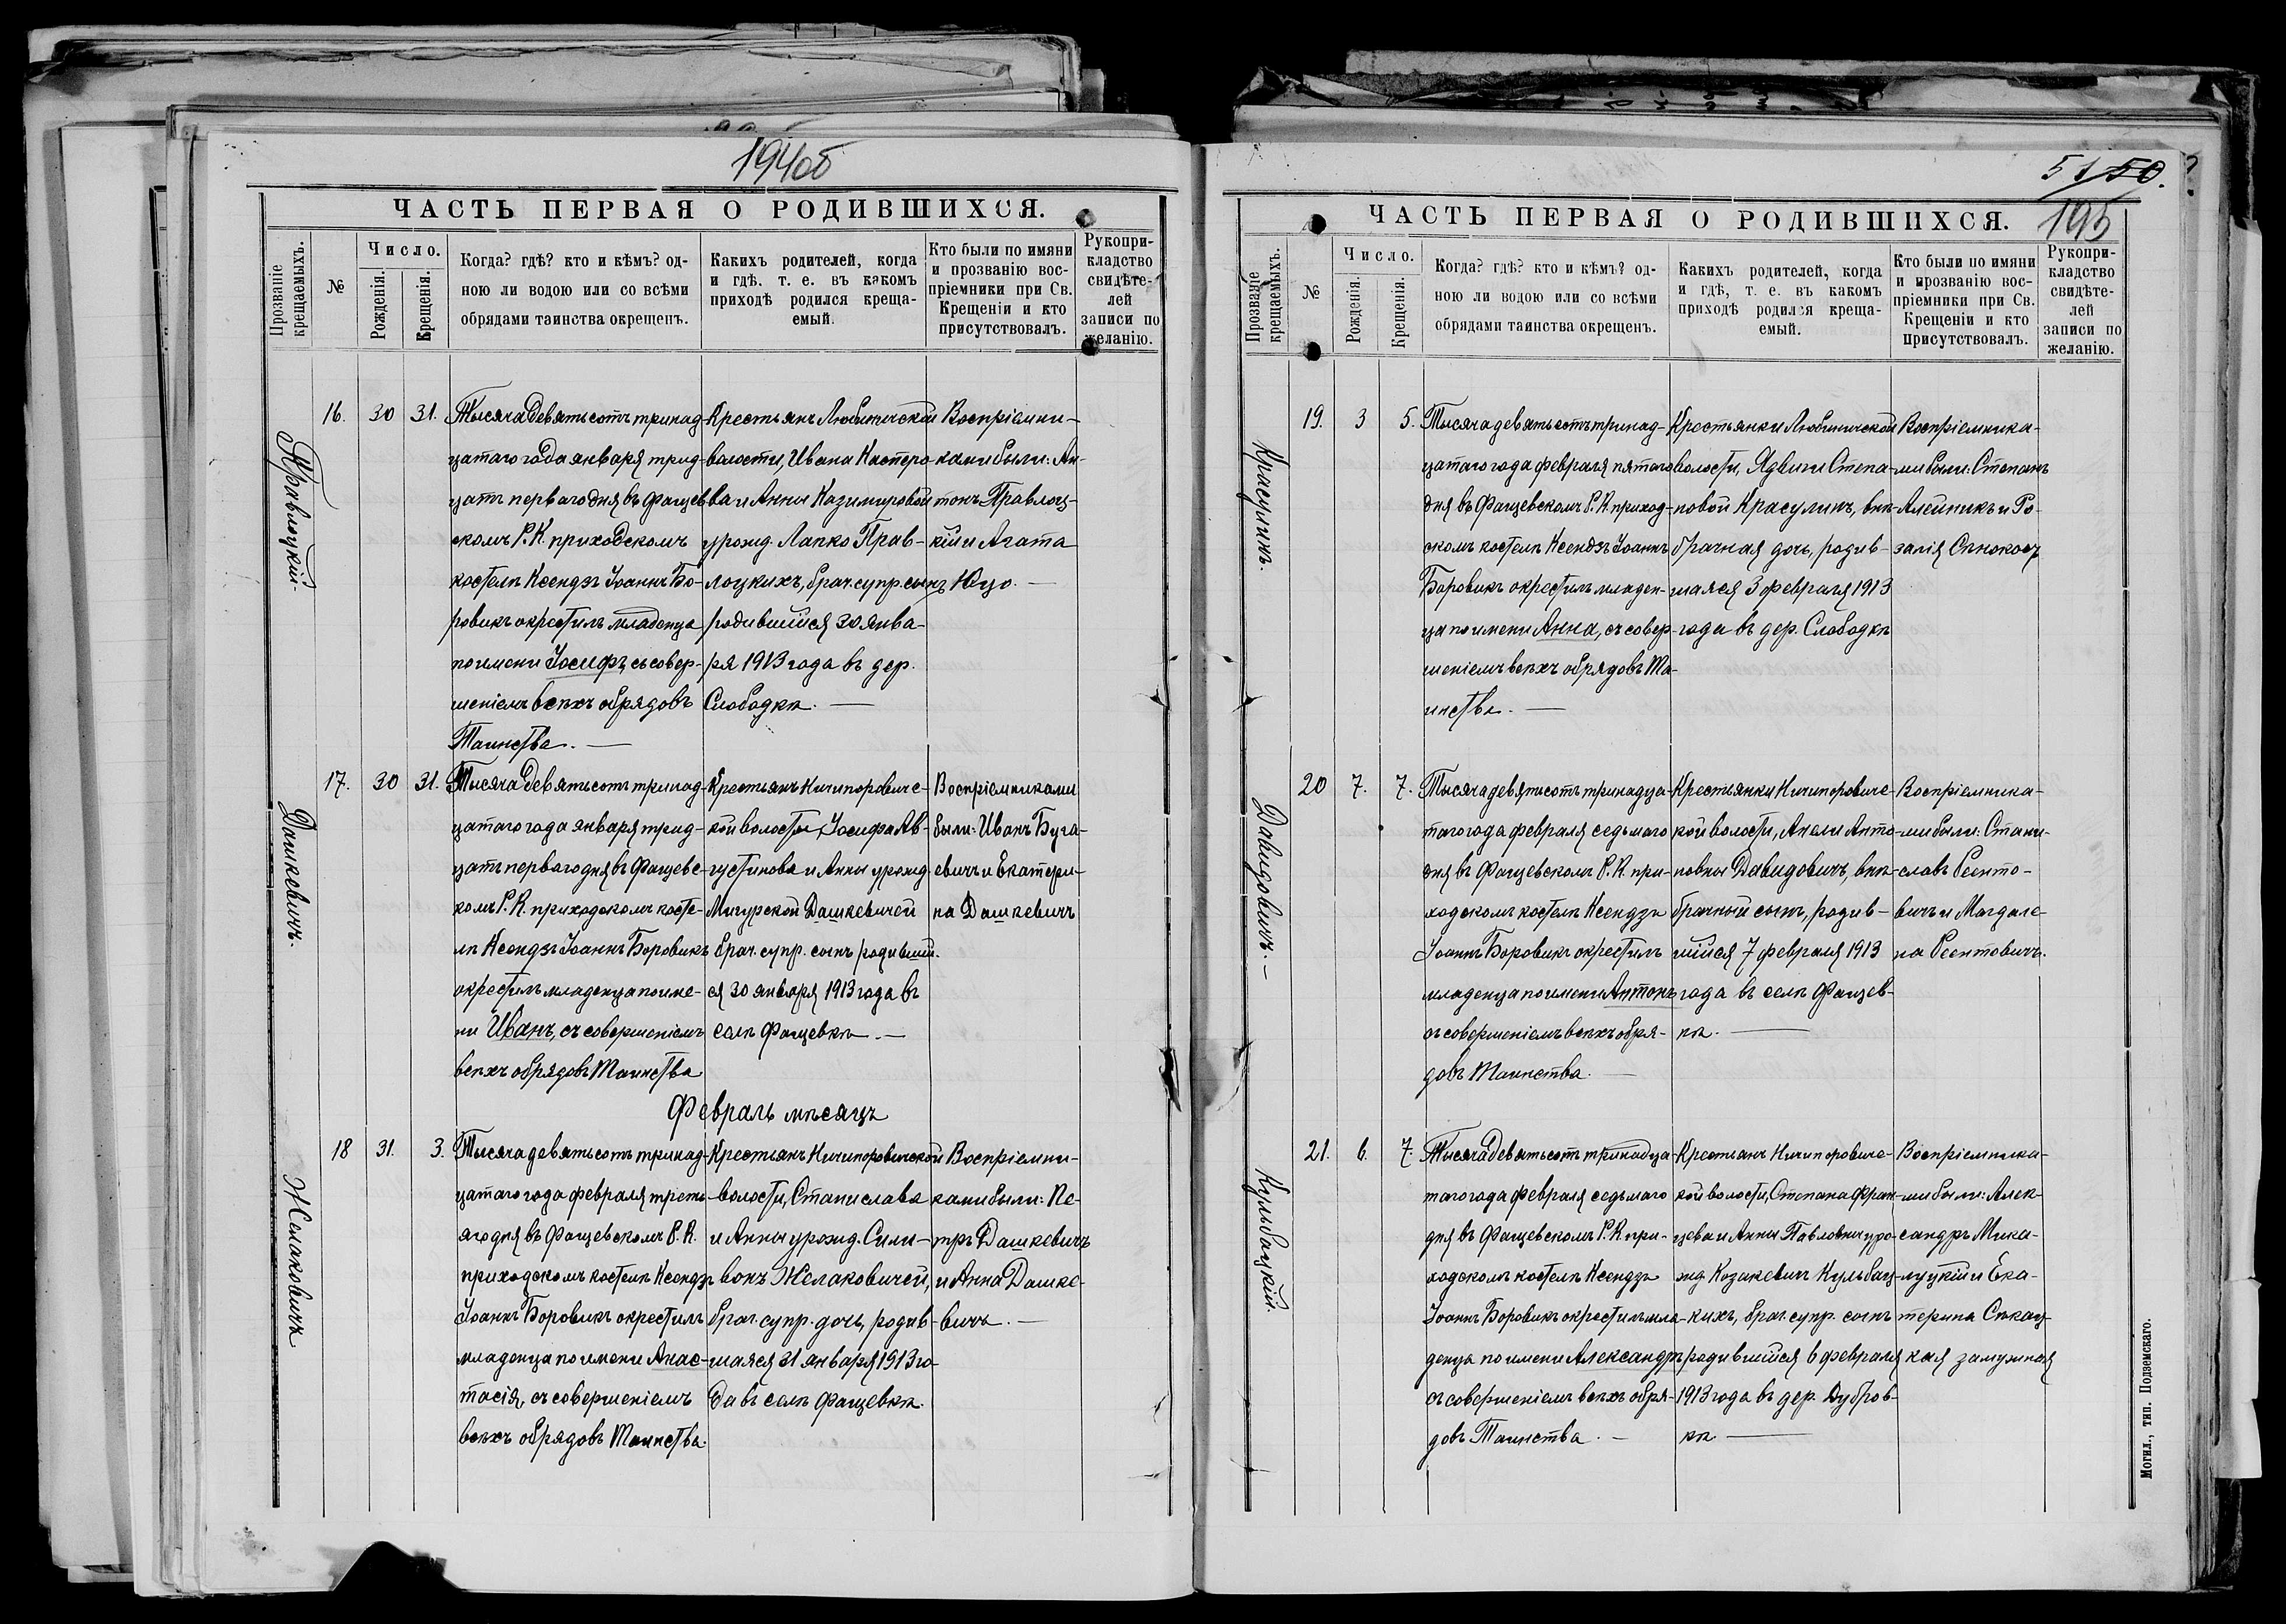 194об
ЧАСТЬ ПЕРВАЯ О РОДИВШИХСЯ.
Прозваніе крещаемыхъ.
№
Число.
Рожденія.
Крещенія.
Когда? гдѣ? кто и кѣмъ? од-
ною ли водою или со всѣми
обрядами таинства окрещенъ.
Какихъ родителей, когда
и гдѣ. т. е. въ какомъ
приходѣ родился креща-
емый.
Кто были по имяни
и прозванію вос-
пріемники при Св.
Крещеніи и кто
присутствовалъ.
Рукопри-
кладство
свидѣте-
лей
записи по
желанію.
Правлоцкій.
16. 30 31.
Тысяча девятьсотъ тринад-
цатаго года января трид-
цать перваго дня въ Фащев
скомъ Р. К. приходскомъ
костелѣ Ксендзъ Іоаннъ Бо-
ровикъ окрестилъ младенца
по имени Іосифъ, съ совер-
шеніемъ всѣхъ обрядовъ
Таинства. —
Крестьянъ Любиничской
волости, Ивана Кастеро-
ва и Анны Казимировой
урожд. Лапко Прав-
лоцкихъ, брач. супр. сынъ
родившійся 30 янва-
ря 1913 года въ дер.
Слободкѣ. —
Воспріемни-
ками были: Ан-
тонъ Правлоц-
кій и Агата
Юцо. —
Дашкевичъ.
17. 30 31.
Тысяча девятьсотъ тринад-
цатаго года января трид-
цать перваго дня въ Фащевс-
комъ Р. К. приходскомъ косте-
лѣ Ксендзъ Іоаннъ Боровикъ
окрестилъ младенца по име-
ни Иванъ, съ совершеніемъ
всѣхъ обрядовъ Таинства
Крестьянъ Ничипоровичс-
кой волости, Іосифа Ав-
густинова и Анны урожд
Мигурской Дашкевичей
брач. супр. сынъ родивший-
ся 30 января 1913 года въ
селѣ Фащевкѣ. —
Воспріемниками
были: Иванъ Буга-
евичъ и Екатери-
на Дашкевичъ
Февраль мѣсяцъ
Желаковичъ
18 31. 3.
Тысяча девятьсотъ тринад-
цатаго года февраля треть-
яго дня въ Фащевскомъ Р. К.
приходскомъ костелѣ Ксендзъ
Іоаннъ Боровикъ окрестилъ
младенца по имени Анас-
тасія, съ совершеніемъ
всѣхъ обрядовъ Таинства.
Крестьянъ Ничипоровичской
волости, Станислава
и Анны урожд. Сили-
вонъ Желаковичей,
брач. супр. дочь, родив-
шаяся 31 января 1913 го-
да въ селѣ Фащевкѣ.
Воспріемни-
ками были: Пе-
тръ Дашкевичъ
и Анна Дашке-
вичъ. —
51 50.
195
ЧАСТЬ ПЕРВАЯ О РОДИВШИХСЯ.
Прозваніе крещаемыхъ.
№
Число.
Рожденія.
Крещенія.
Когда? гдѣ? кто и кѣмъ? од-
ною ли водою или со всѣми
обрядами таинства окрещенъ.
Какихъ родителей, когда
и гдѣ, т. е. въ какомъ
приходѣ родился креща-
емый.
Кто были по имяни
и прозванію вос-
пріемники при Св.
Крещеніи и кто
присутствовалъ.
Рукопри-
кладство
свидѣте-
лей
записи по
желанію.
Красулинъ.
19. 3 5.
Тысяча девятьсотъ тринад-
цатаго года февраля пятаго
дня въ Фащевскомъ Р. К. приход-
скомъ костелѣ Ксендзъ Іоаннъ
Боровикъ окрестилъ младен-
ца по имени Анна, съ совер-
шеніемъ всѣхъ обрядовъ Та-
инства. —
Крестьянки Любиничской
волости, Ядвиги Степа-
новой Красулинъ, внѣ-
брачная дочь, родив-
шаяся 3 февраля 1913
года въ дер. Слободкѣ
Воспріемника-
ми были: Степанъ
Алейникъ и Ро-
залія Сѣнокосъ
Давидовичъ. —
20 7. 7.
Тысяча девятьсотъ тринадца-
таго года февраля седьмаго
дня въ Фащевскомъ Р. К. при-
ходскомъ костелѣ Ксендзъ
Іоаннъ Боровикъ окрестилъ
младенца по имени Антонъ
съ совершеніемъ всѣхъ обря-
довъ Таинства. —
Крестьянки Ничипоровичс-
кой волости, Анели Анто-
новны Давидовичъ, внѣ-
брачный сынъ, родив-
шійся 7 февраля 1913
года въ селѣ Фащев-
кѣ. —
Воспріемника-
ми были: Стани-
славъ Реенто-
вичъ и Магдале-
на Реентовичъ.
Кульбацкій.
21. 6. 7.
Тысяча девятьсотъ тринадца-
таго года февраля седьмаго
дня въ Фащевскомъ Р. К. при-
ходскомъ костелѣ Ксендзъ
Іоаннъ Боровикъ окрестилъ мла-
денца по имени Александръ
съ совершеніемъ всѣхъ обря-
довъ Таинства. —
Крестьянъ Ничипоровичс-
кой волости, Степана Фран-
цева и Анны Павловны уро-
жд Козакевич Кульбац-
кихъ, брач. супр. сынъ
родившійся 6 февраля
1913 года въ дер. Дубров-
кѣ. —
Воспріемника-
ми были: Алек-
сандръ Мика-
луцкій и Ека-
терина Сѣкац-
кая замужная
Могил., тип. Подземскаго.